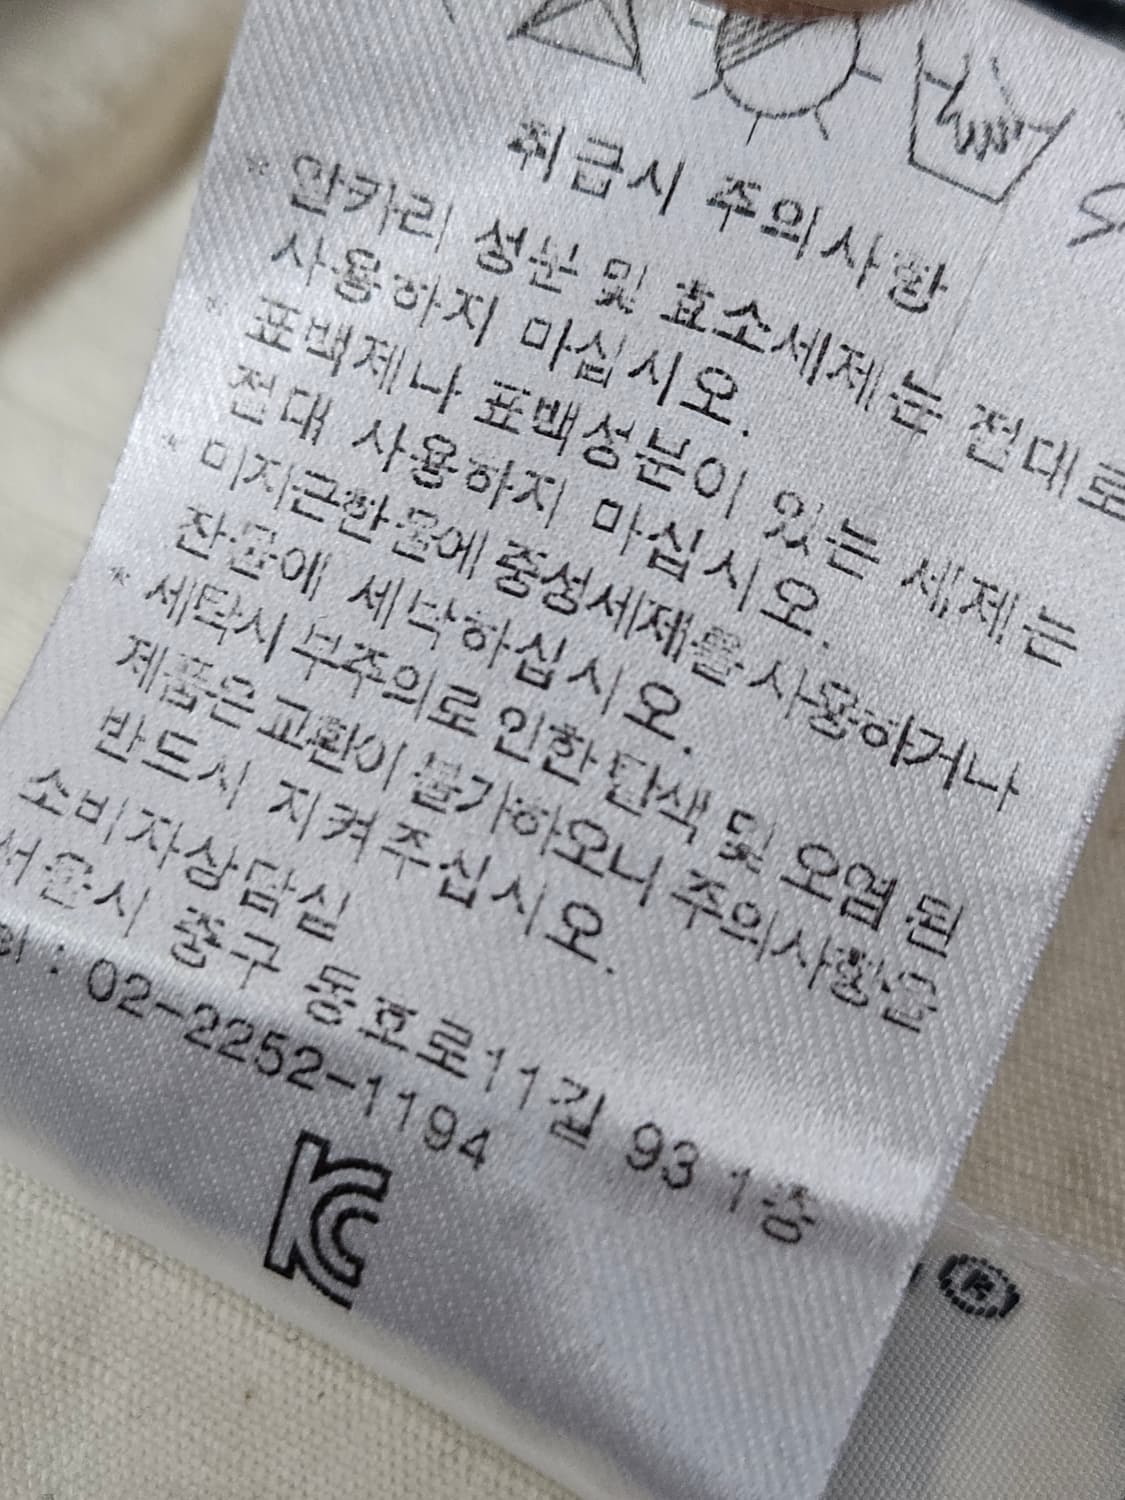 취급시 주의사항
* 알카리 성분 및 효소세제는 전대로
사용하지 마십시오.
* 표백제나 표백성분이 있는 세제는
전대 사용하지 마십시오.
* 미지근한물에 중성세제를 사용하거나
찬물에 세탁하십시오.
* 세탁시 부주의로 인한 탈색 및 오염 된
제품은 교환이 불가하오니 주의사항을
반드시 지켜 주십시오.
소비자상담실
서울시 중구 동호로11길 93 1층
: 02-2252-1194
KC